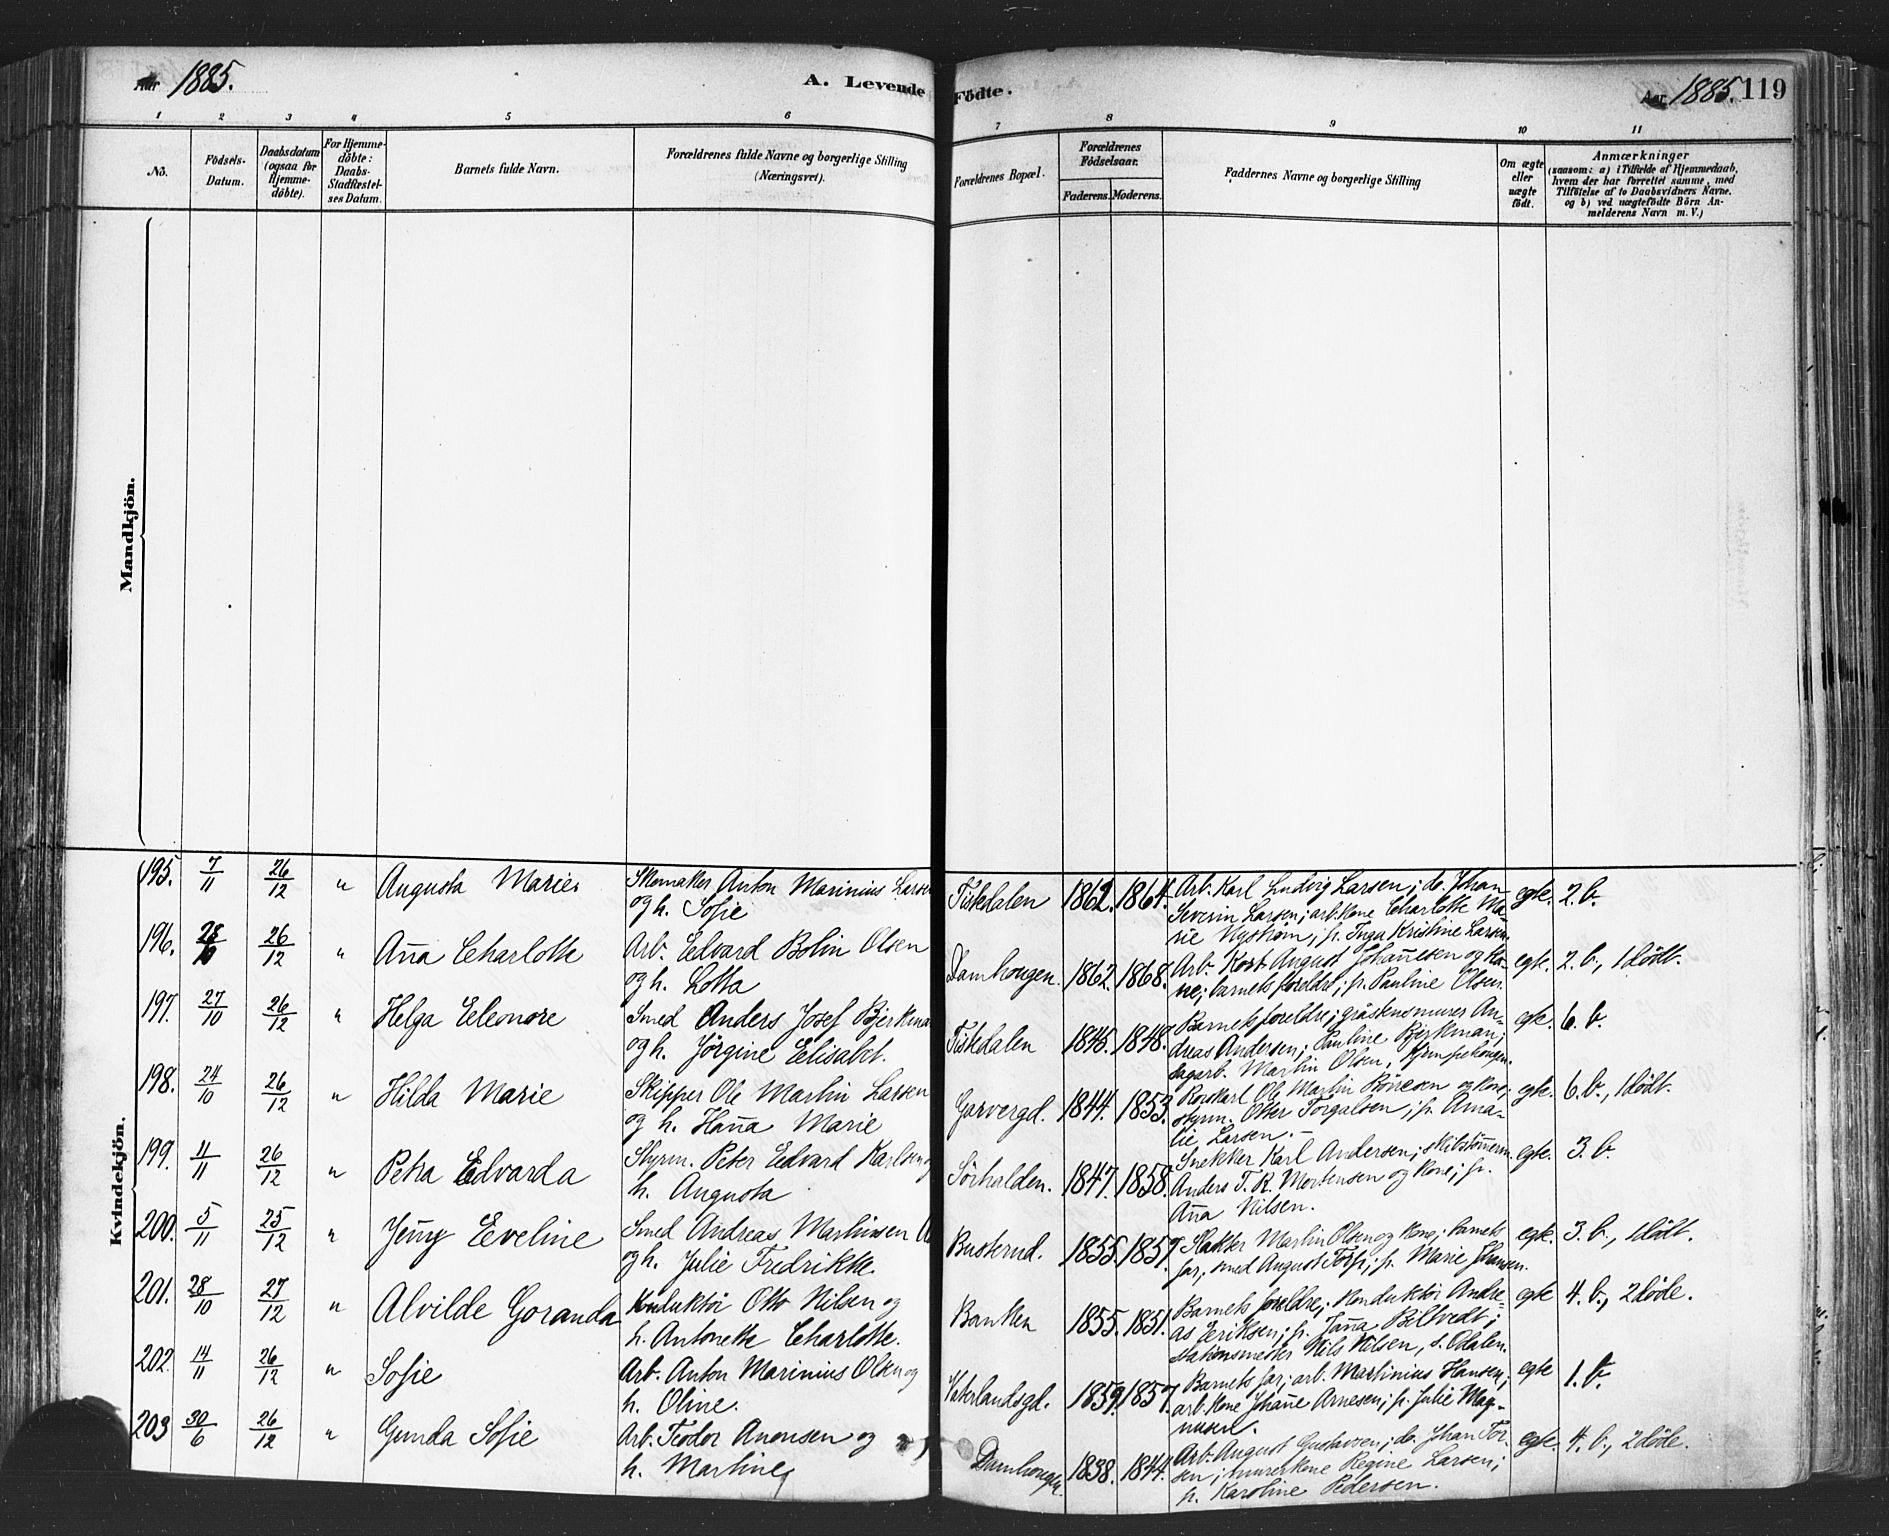 Aar 1885. A. Levende Födte. Aar 1885. 119
1 2 3 4 5 6 7 8 9 10 11
No. Födsels-Datum. Daabsdatum (ogsaa for Hjemme-döbte). For Hjemme-döbte: Daabs-Stadfæstel-ses Datum. Barnets fulde Navn. Forældrenes fulde Navne og borgerlige Stilling (Næringsvei). Forældrenes Bopæl. Forældrenes Födselsaar. Faderens. Moderens. Faddernes Navne og borgerlige Stilling Om ægte eller uægte födt. Anmærkninger (saasom: a) i Tilfælde af Hjemmedaab, hvem der har forrettet samme, med Tilföielse af to Daabsvidners Navne, og b) ved uægtefödte Börn An-melderens Navn m. V.)
Mandkjön.
Kvindekjön.
195. 7/11 26/12 " Augusta Marie. Skomaker Anton Marinius Larsen
og h. Sofie
Fiskedalen 1862. 1864. Arb. Karl Ludvig Larsen; do. Johan
Severin Larsen; arb. kone Charlotte Ma-
rie Nystrøm; p. Inga Kristine Larsen. egte. 2. b.
196. 28/10 26/12 " Anna Charlotte Arb. Edvard Bolin Olsen
og h. Lotta
Damhougen. 1862. 1868. Arb. Karl August Johannesen og ko-
ne; barnets foreldre; p. Pauline Olsen. egte. 2. b., 1 dødt.
197. 27/10 26/12 " Helga Eleonore Smed Anders Josef Bjerkman
og h. Jørgine Elisabet.
Fiskedalen 1846. 1848. Barnets foreldre; gråstensmurer An-
dreas Andersen; Pauline Bjerkman;
dagarb. Martin Olsen, egte. 6. b.
198. 24/10 26/12 " Hilda Marie Skipper Ole Martin Larsen
og h. Hanna Marie
Garvergd. 1844. 1853. Rorskarl Ole Martin Børesen og kone;
styrm. Otter Torgalsen; p. Ama-
lie Larsen. egte. 6. b., 1 dødt.
199. 11/11 26/12 " Petra Edvarda Styrm. Peter Edvard Karlsen og
h. Augusta
Sørhalden. 1847. 1858. Snekker Karl Andersen; skibstømerm.
Anders T. R. Mortensen og kone; p.
Anna Nilsen. egte. 3. b.
200. 5/11 25/12 " Jenny Eveline Smed Andreas Martinsen
og h. Julie Fredrikke.
Busterud. 1855. 1857. Slakter Martin Olsen og kone; barnets
far; smed August Torp; p. Marie Johansen. egte. 3. b., 1 dødt.
201. 28/10 27/12 " Alvilde Goranda Konduktør Otto Nilsen og
h. Antonetta Charlotte.
Banken 1855. 1851. Barnets foreldre; konduktør Andre-
as Eriksen; p. Janna Biltvedt;
stationsmester Nils Nilsen, s. Odalen. egte 4. b., 2 døde.
202. 14/11 26/12 " Sofie Arb. Anton Marinius Olsen og
h. Oline.
Vaterlandsgd. 1859. 1857. Barnets far; arb. Martinius Hansen;
arb. kone Johanne Arnesen; p. Julie Mag-
nusen. egte 1. b.
203 30/6 26/12 " Gunda Sofie Arb. Teodor Anonsen og
h. Martine
Damhougen. 1838. 1844. Arb. August Gustavsen; do. Johan Tor-
sen; murerkone Regine Larsen;
p. Karoline Pedersen. egte. 4. b., 2 døde.